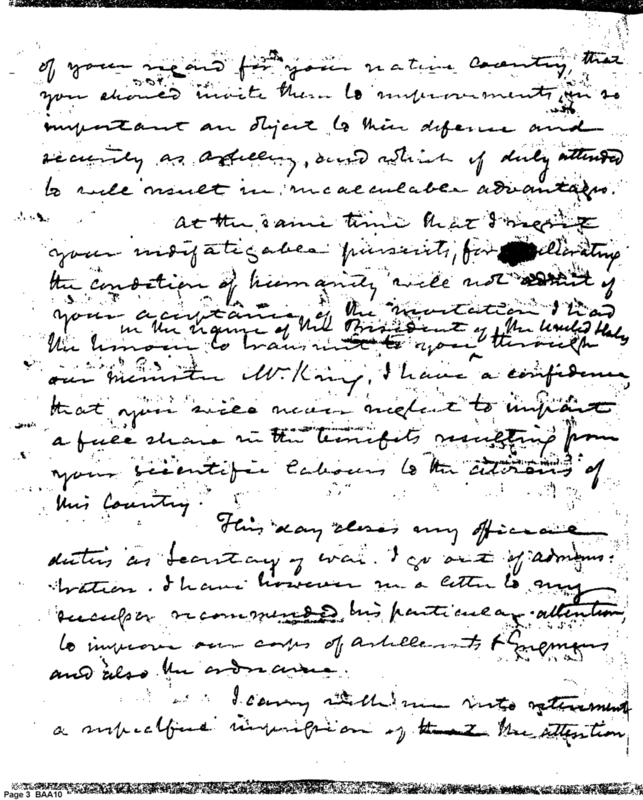 of your regard for your native Country, that
you should invite them to improvements, in so
important an object to their defense and
security as Artillery, and which if duly attended
to will result in incalculable advantages.
At the same time that I regret
your indefatigable pursuits, for
the condition of humanity will not admit of
your acceptance of the invitation I had
in the name of the President of the United States
the honour to transmit to you through
our minister Mr King, I have a confidence,
that you will never neglect to impart
a full share in the benefits resulting from
your scientific labours to the citizens of
this Country.
This day closes my official
duties as Secretary of war. I go out of adminis-
tration. I have however in a letter to my
successor recommended his particular attention,
to improve our corps of Artillerists & Engineers
and also the ordnance.
I carry with me into retirement
a respectful impression of that the attention
Page 3 BAA10